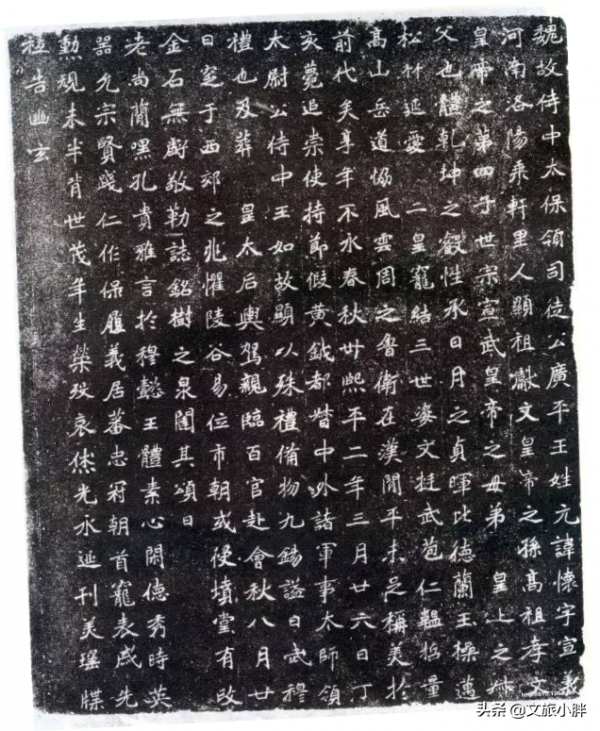 魏故侍中太保領司徒公廣平王姓元諱懷字宣義
河南洛陽乘軒里人顯祖獻文皇帝之孫高祖孝文
皇帝之第四子世宗宣武皇帝之母弟 皇上之叔
父也體乾坤之叡性承日月之貞暉比德蘭玉操邁
松竹延愛 二皇寵結三世姿文挺武苞仁韞哲量
高山岳道協風雲周之魯衛在漢間平未足稱美於
前代矣享年不永春秋卅熙平二年三月廿六日丁
亥薨追崇使持節假黃鉞都督中外諸軍事太師領
太尉公侍中王如故顯以殊禮備物九錫謚曰武穆
禮也及葬 皇太后輿駕親臨百官赴會秋八月廿
日窆于西郊之兆懼陵谷易位市朝或侵墳堂有改
金石無虧敬勒誌銘樹之泉闥其頌曰
老尚簡嘿孔貴雅言於穆懿王體素心閑德秀時英
器允宗賢踐仁作保履義居蕃忠冠朝首寵表戚先
勳規未半背世茂年生榮歿哀休光永延刊美瑤牒
祗告幽玄
头条 @文旅小胖